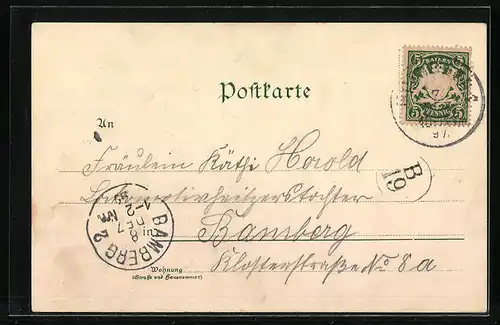 Postkarte
BAYERN
5 5
PFENNIG
5 5
97.
An
Fräulein Käthi Herold
B
19
Lokomotivheizerstochter
in Bamberg
BAMBERG 2
Wohnung
(Straße und Hausnummer)
Klosterstraße No 8a